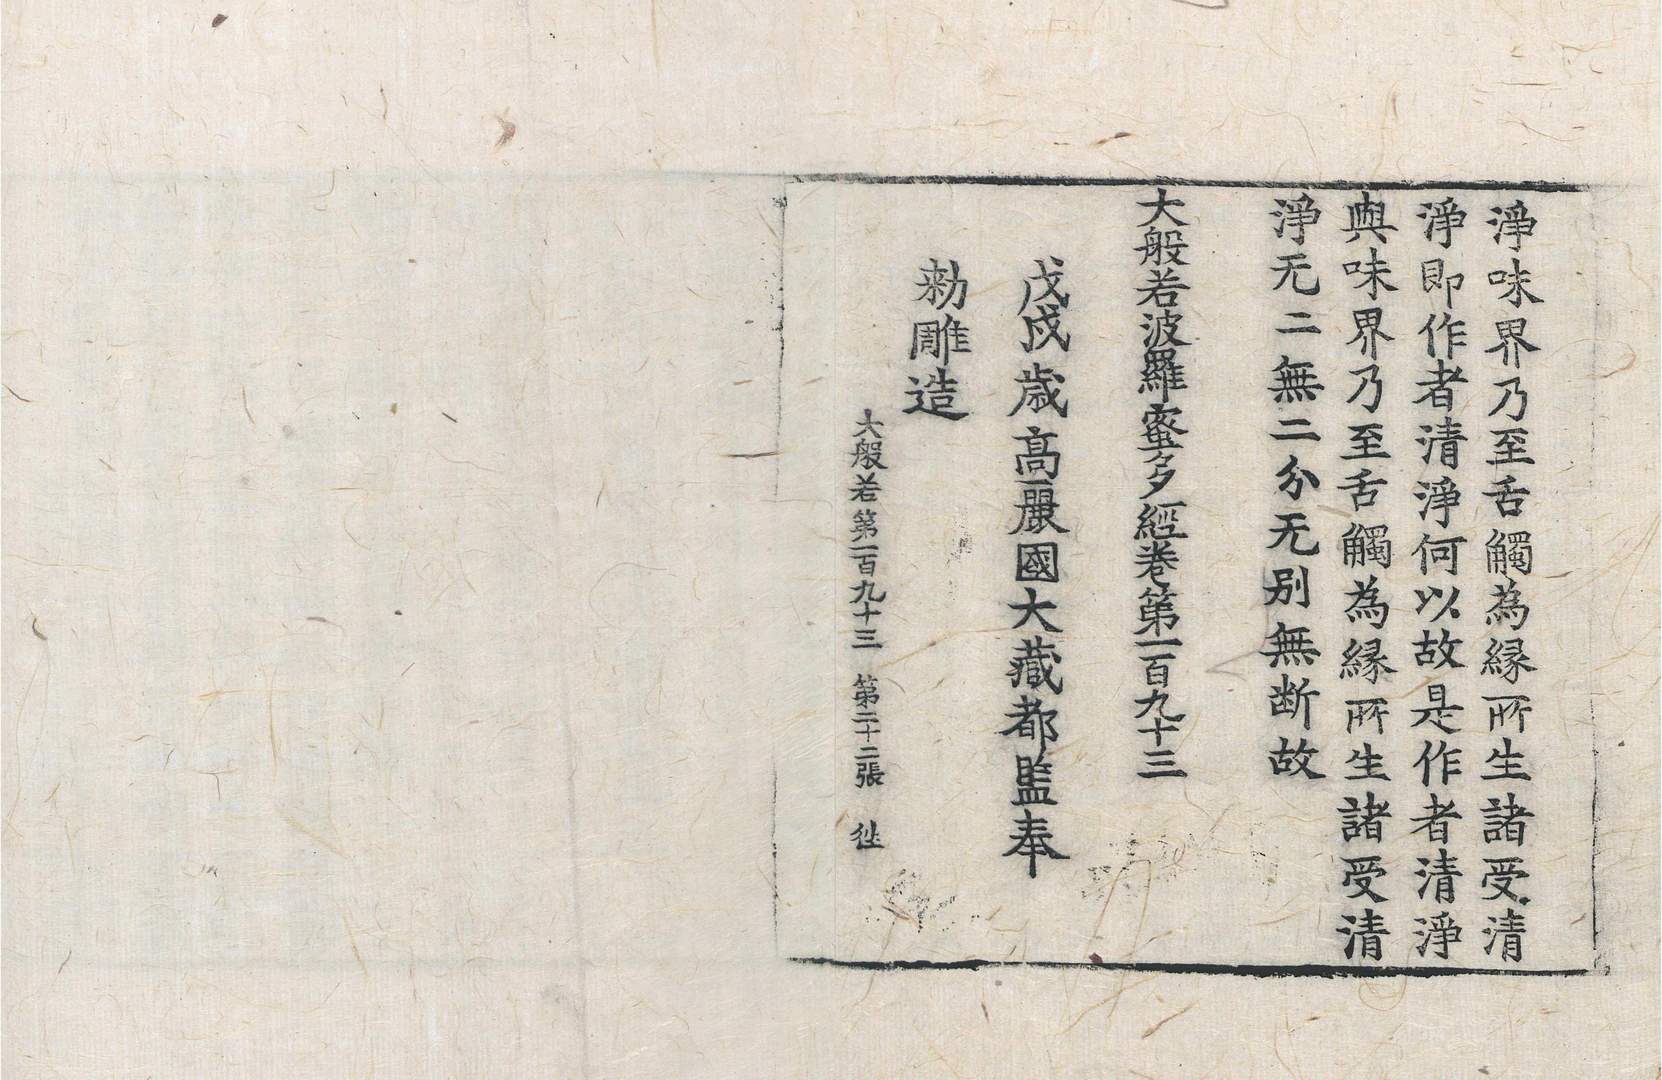 淨味界乃至舌觸為縁所生諸受清
淨即作者清淨何以故是作者清淨
與味界乃至舌觸為縁所生諸受清
淨无二無二分无別無断故
大般若波羅蜜多經卷第一百九十三
戊戌歳高麗國大藏都監奉
勑雕造
大般若第一百九十三 第二十二張